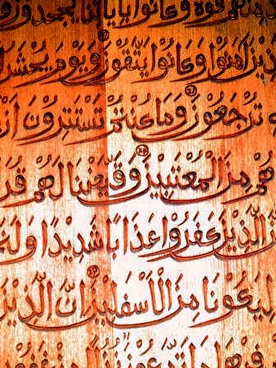 منهم قوة وكانوا بآياتنا يجحدون
الذين آمنوا وكانوا يتقون ويوم يحشر
ترجعون وما كنتم تستترون أن
هم من المعتبين وقيضنا لهم قر
الذين كفروا عذابا شديدا ولنـ
ليكونا من الأسفلين إن الذين
فيها ما تدعون نزلا من غفور